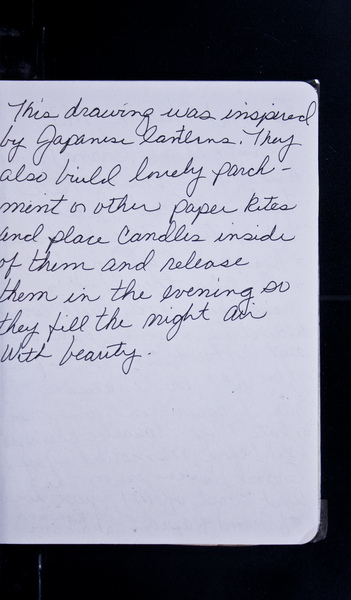 This drawing was inspired
by Japanese lanterns. They
also build lovely parch-
ment or other paper kites
and place candles inside
of them and release
them in the evening so
they fill the night air
with beauty.